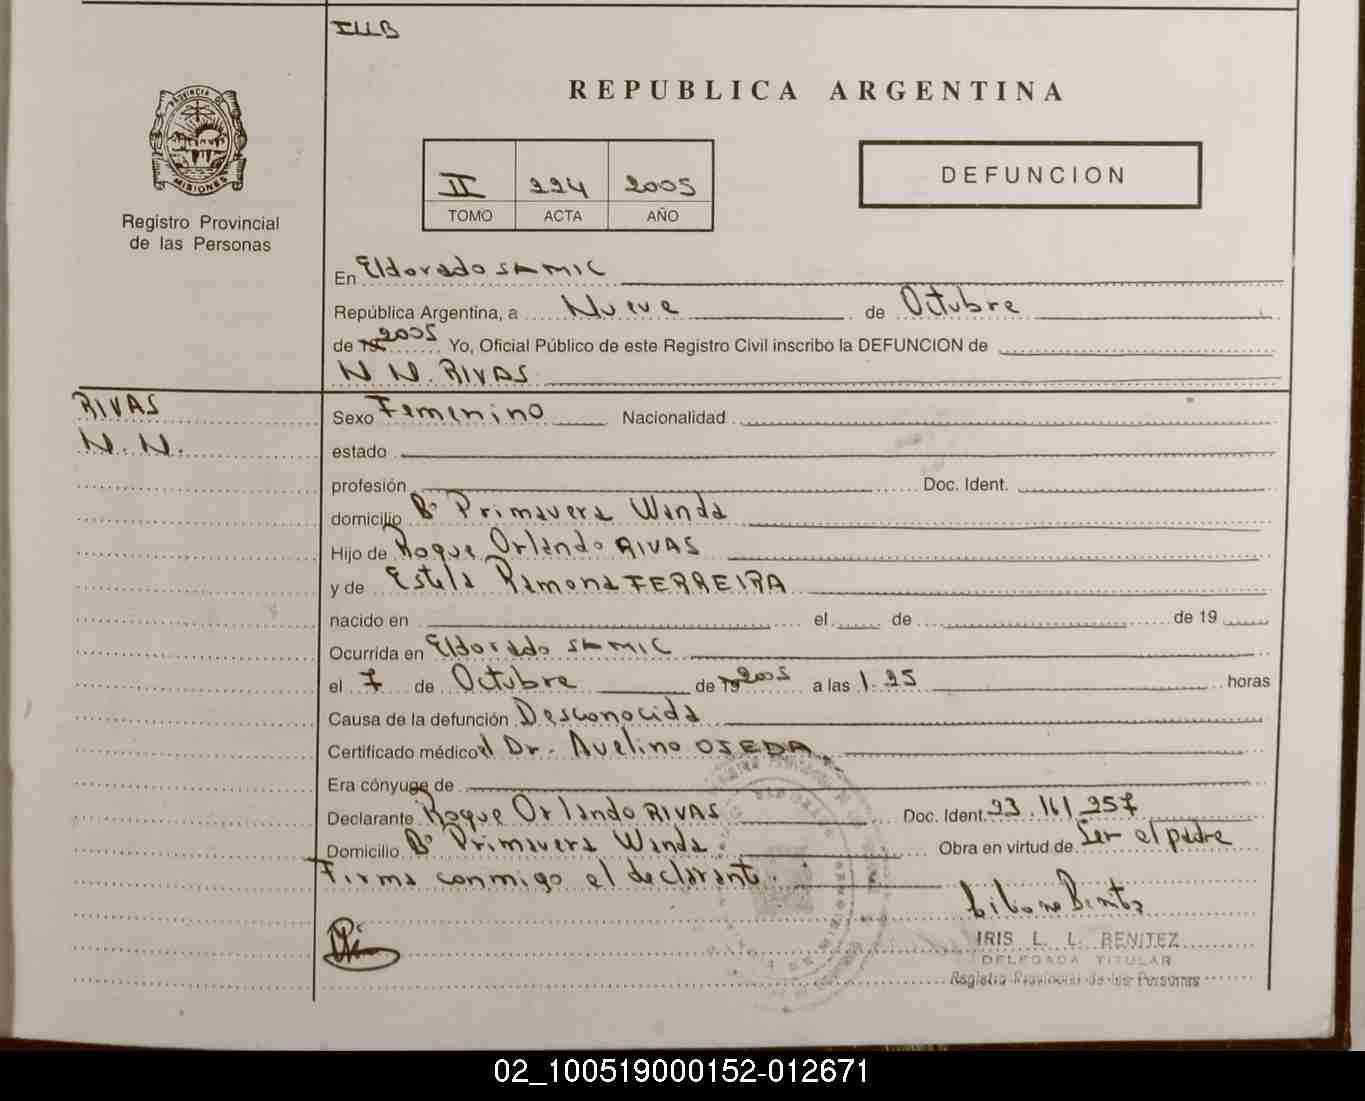 ILLB
REPUBLICA ARGENTINA
PROVINCIA DE
MISIONES
Registro Provincial
de las Personas
II 224 2005
TOMO ACTA AÑO
DEFUNCION
En Eldorado SAMIC
República Argentina, a Nueve de Octubre
de 19 2005 Yo, Oficial Público de este Registro Civil inscribo la DEFUNCION de
N N. RIVAS
RIVAS
N. N.
Sexo Femenino Nacionalidad
estado
profesión Doc. Ident.
domicilio Bº Primavera Wanda
Hijo de Roque Orlando RIVAS
y de Estela Ramona FERREIRA
nacido en el de de 19
Ocurrida en Eldorado SAMIC
el 7 de Octubre de 19 2005 a las 1.25 horas
Causa de la defunción Desconocida
Certificado médico d Dr. Avelino OJEDA
Era cónyuge de
Declarante Roque Orlando RIVAS Doc. Ident. 23.161.257
Domicilio Bº Primavera Wanda. Obra en virtud de Ser el padre
Firma conmigo el declarante.
IRIS L. L. BENITEZ
DELEGADA TITULAR
Registro Provincial de las Personas
02_100519000152-012671